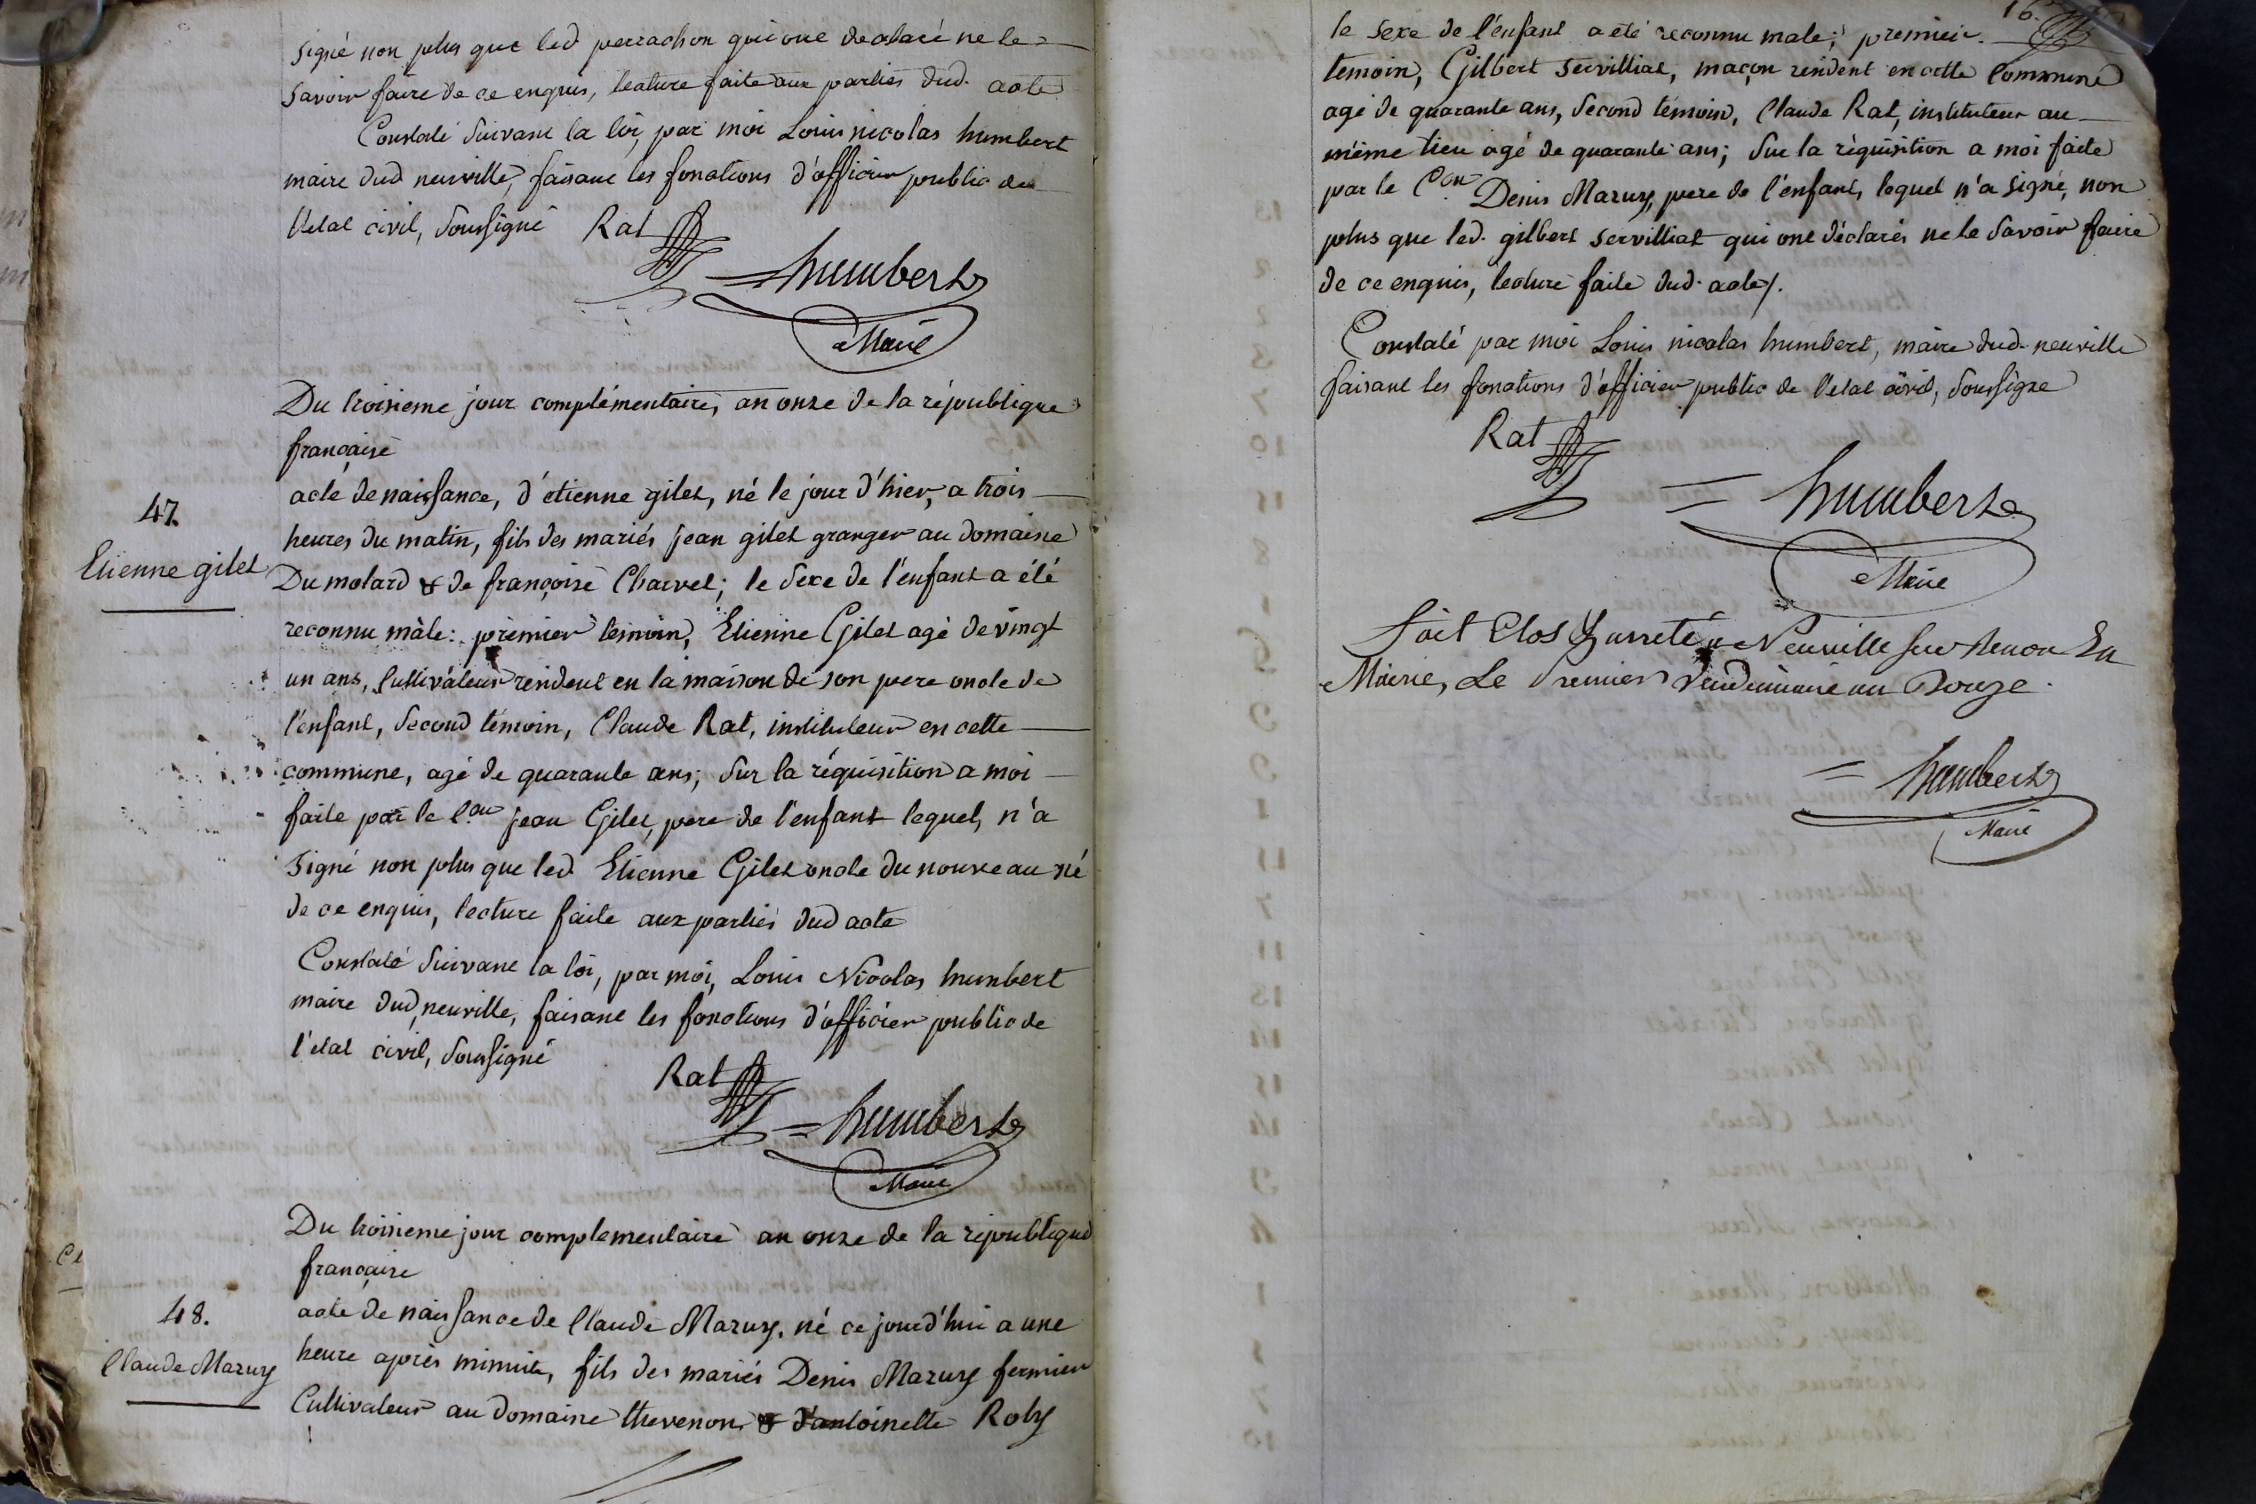 signé non plus que led perrachon qui ont declaré ne le
savoir faire de ce enquis, lecture faite aux parties dud. acte
Constaté suivant la loi, par moi Louis nicolas humbert
maire dud neuville, faisant les fonctions d'officier public de
l'etat civil, soussigné Rat
humbert
Maire
Du troisieme jour complémentaire, an onze de la république
française
47.
Etienne gilet
acte de naissance, d'etienne gilet, né le jour d'hier, a trois
heures du matin, fils des mariés jean gilet granger au domaine
Du molard & de françoise Charvet; le sexe de l'enfant a été
reconnu mâle: premier temoin, Etienne Gilet agé de vingt
un ans, cultivateur résident en la maison de son pere oncle de
l'enfant, second témoin, Claude Rat, instituteur en cette
commune, agé de quarante ans; sur la réquisition a moi
faite par le C.en jean Gilet, pere de l'enfant lequel, n'a
signé non plus que led Etienne Gilet oncle du nouveau né
de ce enquis, lecture faite aux parties dud acte
Constaté suivant la loi, par moi, Louis Nicolas humbert
maire dud neuville, faisant les fonctions d'officier public de
l'etat civil, soussigné
Rat
humbert
Maire
Du troisieme jour complementaire an onze de la republique
française
48.
Claude Mazuy
acte de naissance de Claude Mazuy, né ce jourd'hui a une
heure après minuit, fils des mariés Denis Mazuy fermier
Cultivateur au domaine thevenon & d'antoinette Roby
16.
le sexe de l'enfant a été reconnu male; premier
temoin, Gilbert servilliat, maçon résident en cette Commune
agé de quarante ans, second témoin, Claude Rat, instituteur au
même lieu agé de quarante ans; sur la réquisition a moi faite
par le C.en Denis Mazuy, pere de l'enfant, lequel n'a signé, non
plus que led. gilbert servilliat qui ont déclarés ne le savoir faire
de ce enquis, lecture faite dud. acte/.
Constaté par moi Louis nicolas humbert, maire dud. neuville
faisant les fonctions d'officier public de l'etat civil, soussigne
Rat
humbert
Maire
Fait Clos & arreté a Neuville sur Renon En
Mairie, Le Premier Vendémiaire an Douze.
humbert
Maire